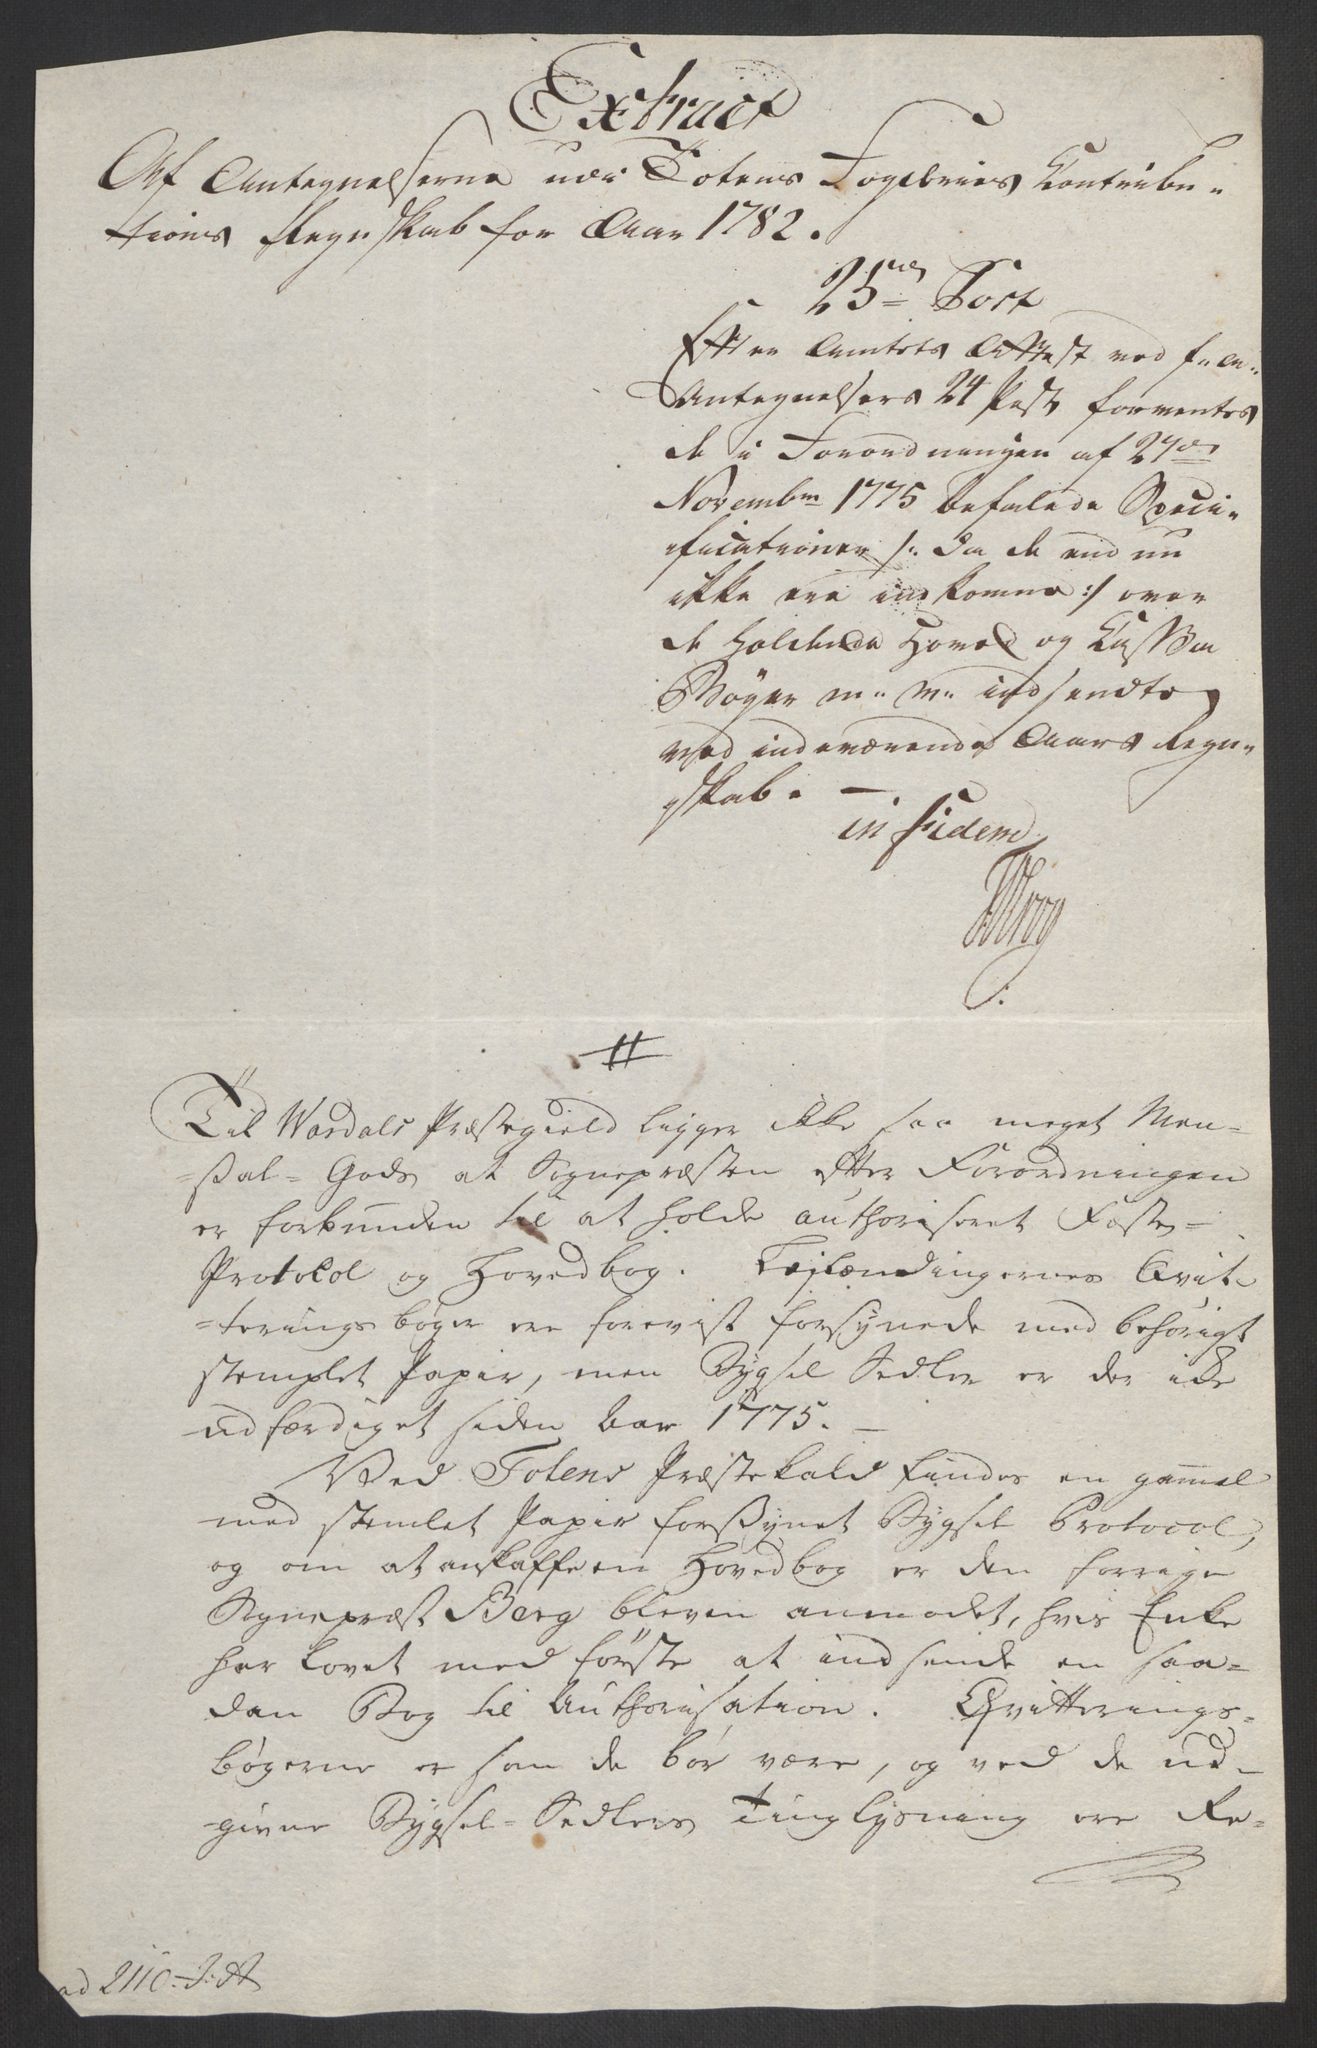 Extract
Af Antegnelserne udi Totens Fogderies Contribu-
tions Regnskab for Aar 1782.
25de Post
Efter Amtets Attest ved f. A.
Antegnelsers 24 Post forventes
de i Forordningen af 27de
Novembr 1775 befalede Speci-
ficationer /: da de end nu
ikke ere indkomne :/ over
de holdende Hoved og Cassa
Bøger m. m. indsendte
ved indeværende Aars Regn-
skab. —
in fidem
Til Wardals Præstegield ligger ikke saa meget Men-
-sal-Gods at Sognepræsten efter Forordningen
er forbunden til at holde authoriseret Fæste-
Protokol og Hovedbog. Leylændingernes Qvit-
-terings bøger ere forevist forsynede med behörigt
stemplet Papir, men Bygsel Sedler er der icke
udfærdiget siden Aar 1775. —
Ved Totens Præstekald findes en gammel
med stemlet Papir forsynet Bygsel Protocol,
og om at anskaffe en Hovedbog er den forrige
Sognepræst Berg bleven anmodet, hvis Enke
har lovet med förste at indsende en saa-
dan Bog til Authorisation. Qvitterings-
bögerne er som de bör være, og ved de ud-
givne Bygsel-Sedlers Tinglysning ere Re-
ad 2110